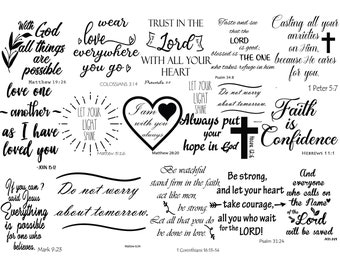 With God
all things are
possible
Matthew 19:26
wear
love
everywhere
you go
COLOSSIANS 3:14
TRUST IN THE
Lord
WITH ALL YOUR
HEART
Proverbs 3:5
Taste and see
that the
LORD
is good;
blessed is THE ONE
who takes refuge in him
Psalm 34:8
Casting all your
anxieties
on Him,
because He cares
for you.
1 Peter 5:7
love one
another
as I have
loved you
LET YOUR
LIGHT
SHINE
I am
with you
always
Matthew 28:20
LET YOUR
LIGHT
SHINE
Always put
your
hope in God
Do not worry
about tomorrow.
Faith
is
Confidence
HEBREWS 11:1
If you can?
said Jesus
Everything
is possible
for one who
believes.
Mark 9:23
Do not worry
about tomorrow.
Be watchful
stand firm in the faith,
act like men,
be strong.
Let all that you do
be done in love.
1 Corinthians 16:13-14
Be strong,
and let your heart
take courage,
all you who wait
for the LORD!
Psalm 31:24
And
everyone
who calls
on the Name
of the
Lord
will be saved